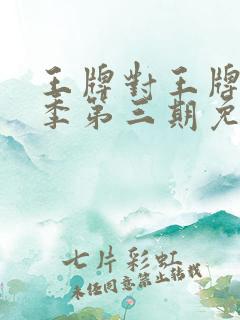 王牌對王牌
季第三期免
七片彩虹
未經同意禁止轉載